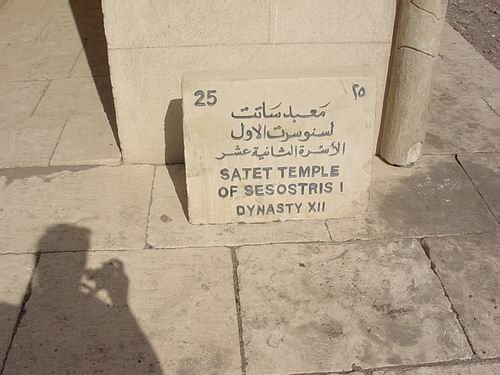 25 ٢٥
معبد ساتت
لسنوسرت الاول
الأسرة الثانية عشر
SATET TEMPLE
OF SESOSTRIS I
DYNASTY XII